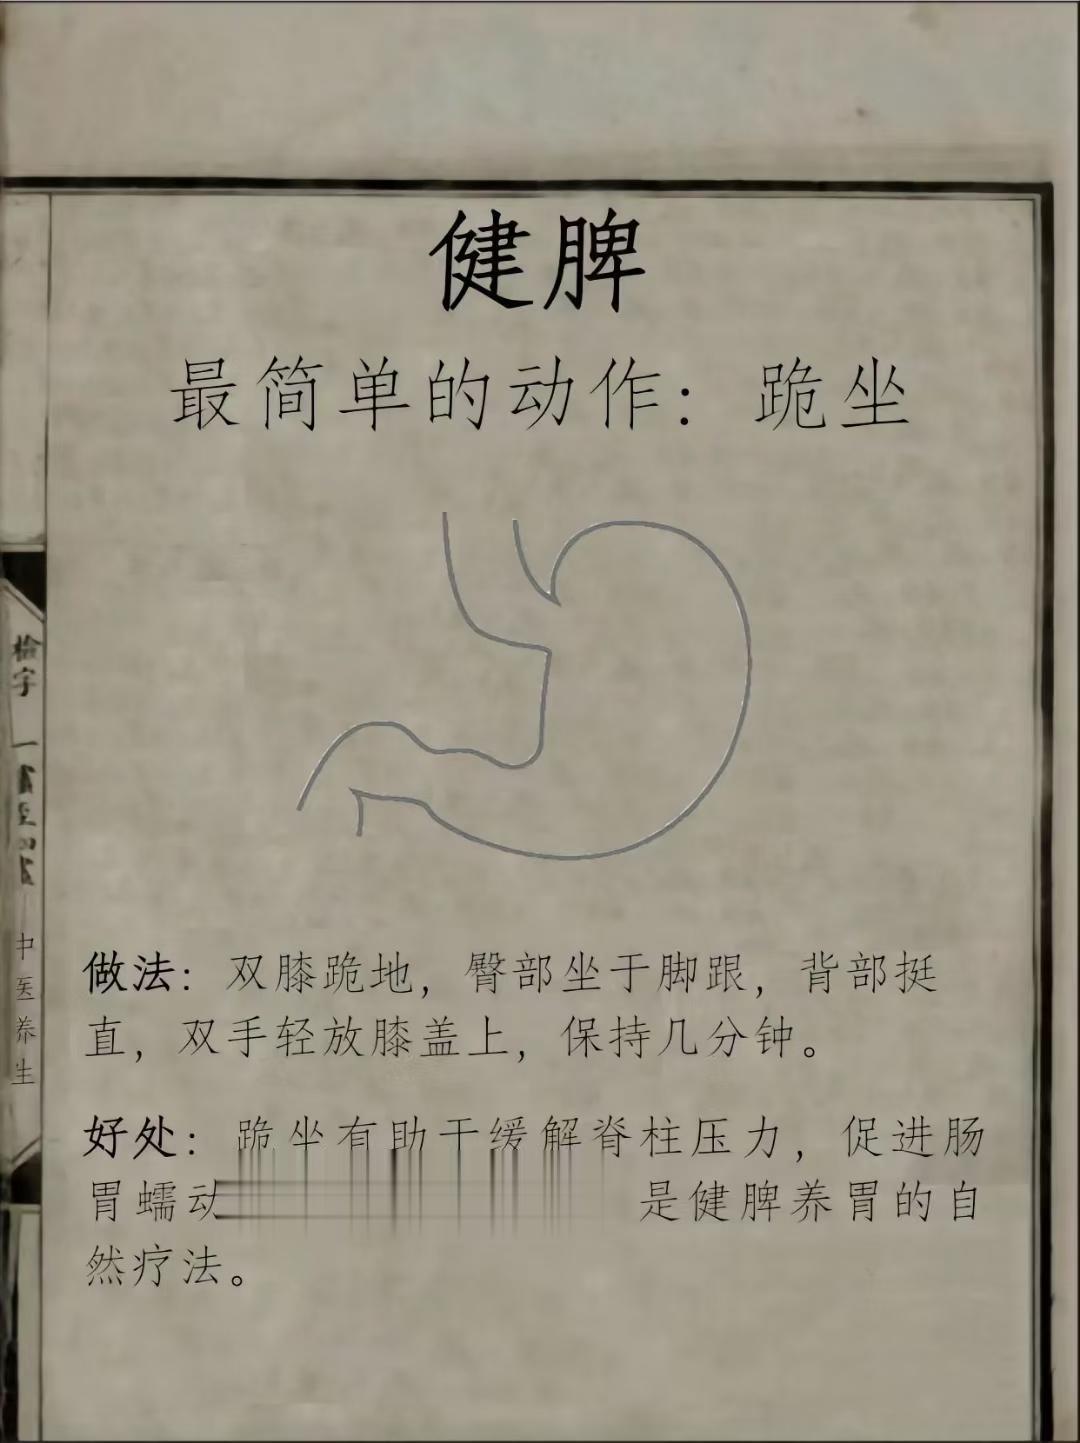 健脾
最简单的动作：跪坐
做法：双膝跪地，臀部坐于脚跟，背部挺
直，双手轻放膝盖上，保持几分钟。
好处：跪坐有助于缓解脊柱压力，促进肠
胃蠕动
是健脾养胃的自
然疗法。
檢字
一畫至四畫
中医养生